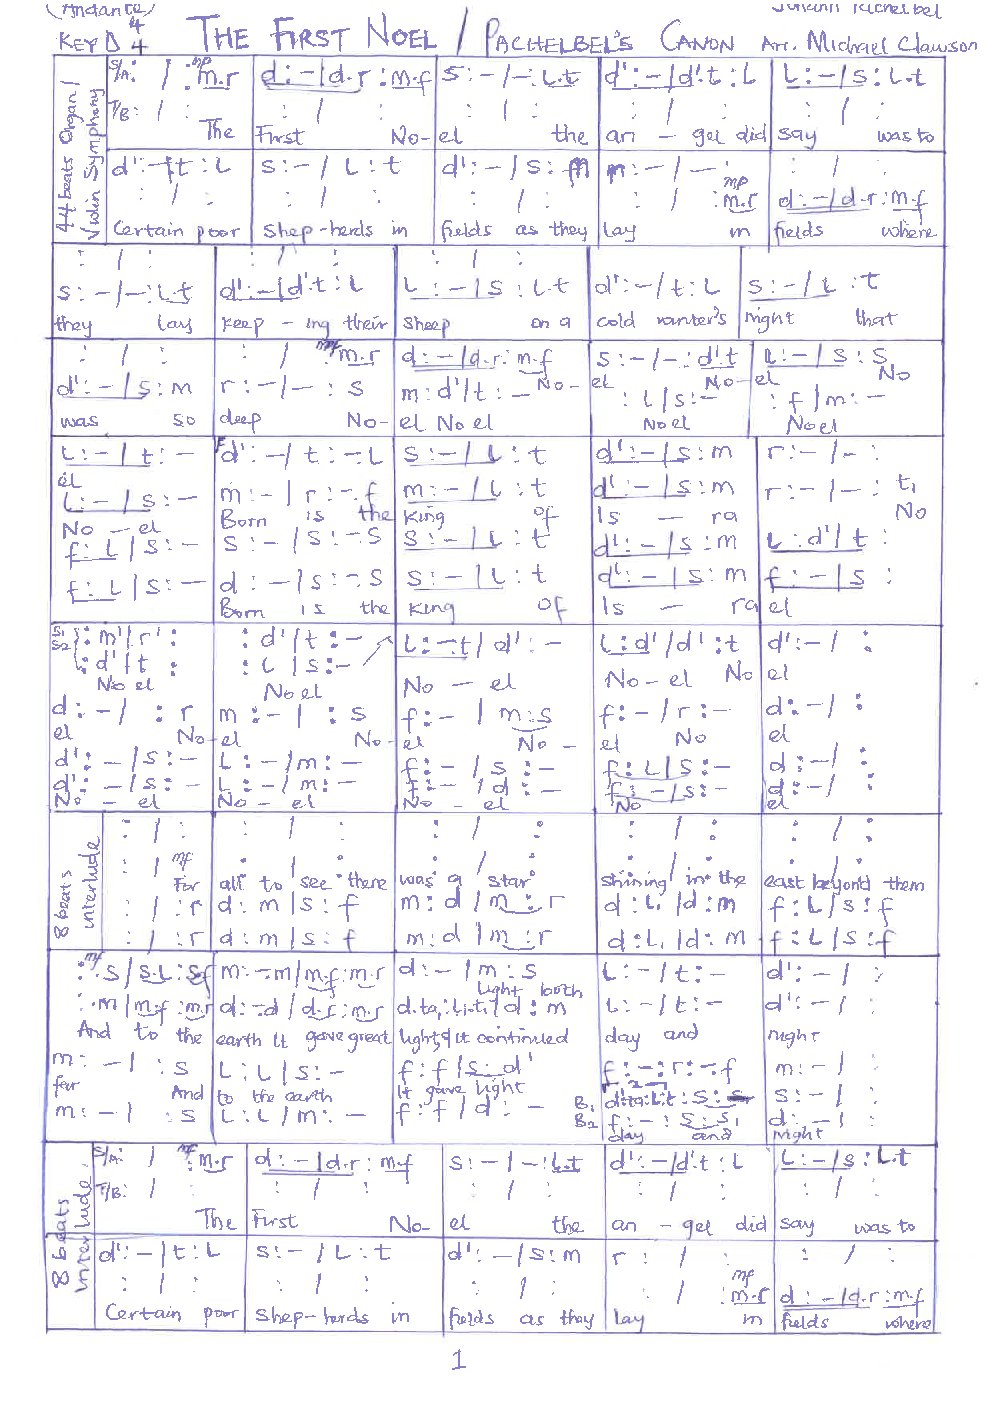 (Andante)
Johann Pachelbel
KEY D 4/4 THE FIRST NOEL / PACHELBEL'S CANON Arr. Michael Clawson
44 beats Organ / Violin Symphony
S/A: : / : mp m.r | d:-/d.r:m.f | s:-/-:l.t | d':-/d'.t:L | L:-/s:L.t
T/B: : / : | : / : | : / : | : / : | : / :
The | First No- | el the | an - gel did | say was to
d':-/t:L | s:-/L:t | d':-/s:m | m:-/- : | : / :
: / : | : / : | : / : | : / : mp m.r | d:-/d.r:m.f
Certain poor | Shep-herds in | fields as they | lay in | fields where
: / : | : / : | : / : | |
s:-/-:L.t | d':-/d'.t:L | L:-/s:L.t | d':-/t:L | s:-/L:t
they lay | keep - ing their | Sheep on a | cold winter's | night that
: / : | : / : mf m.r | d:-/d.r:m.f | s:-/-:d'.t | L:-/s:s
No-el | No-el | No
d':-/s:m | r:-/-:s | m:d'/t:- | : L/s:- | : f/m:-
was so | deep No- | el Noel | Noel | Noel
L:-/t:- | d':-/t:-.L | s:-/L:t | d':-/s:m | r:-/-:
el
L:-/s:- | m:-/r:-.f | m:-/L:t | d':-/s:m | r:-/-:t,
No - el | Born is the | King of | Is - ra | No
f:L/s:- | s:-/s:-.s | s:-/L:t | d':-/s:m | L:d'/t:
f:L/s:- | d:-/s:-.s | s:-/L:t | d':-/s:m | f:-/s:
Born is the | King of | Is - ra | el
S1 : m'/r': | : d'/t:- | L:-.t/d':- | L:d'/d':t | d':-/ :
S2 : d'/t : | : L/s:-
Noel | Noel | No - el | No-el No | el
d:-/ :r | m:-/ :s | f:-/m:s | f:-/r:- | d:-/ :
el No- | el No- | el No- | el No | el
d':-/s:- | L:-/m:- | f:-/s:- | f:L/s:- | d:-/ :
d':-/s:- | L:-/m:- | f:-/d:- | f:-/s:- | d:-/ :
No - el | No - el | No - el | No | el
8 beats interlude
: / : | : / : | : / : | : / : | : / :
: / : mf | : / : | : / : | : / : | : / :
For | all to see there | was a star | shining in the | east beyond them
: / :r | d:m/s:f | m:d/m:r | d:L,/d:m | f:L/s:f
: / :r | d:m/s:f | m:d/m:r | d:L,/d:m | f:L/s:f
mf : s/s.L:s.f | m:-.m/m.f:m.r | d:-/m:s | L:-/t:- | d':-/ :
light both
: m/m.f:m.r | d:-.d/d.r:m.r | d.ta,:L,.t,/d:m | L:-/t:- | d':-/ :
And to the | earth it gave great | light,& it continued | day and | night
m:-/ :s | L:L/s:- | f:f/s:d' | f:-:r:-.f | m:-/ :
far And | to the earth | it gave light
m:-/ :s | L:L/m:- | f:f/d:- | B1 | s:-/ :
B2 f:-:s:s, | d:-/ :
day and | night
8 beats interlude.
S/A: / : mf m.r | d:-/d.r:m.f | s:-/-:L.t | d':-/d'.t:L | L:-/s:L.t
T/B: / : | : / : | : / : | : / : | : / :
The | First No- | el the | an - gel did | say was to
d':-/t:L | s:-/L:t | d':-/s:m | r: / : | : / :
: / : | : / : | : / : | / : mf m.r | d:-/d.r:m.f
Certain poor | Shep-herds in | fields as they | lay in | fields where
1